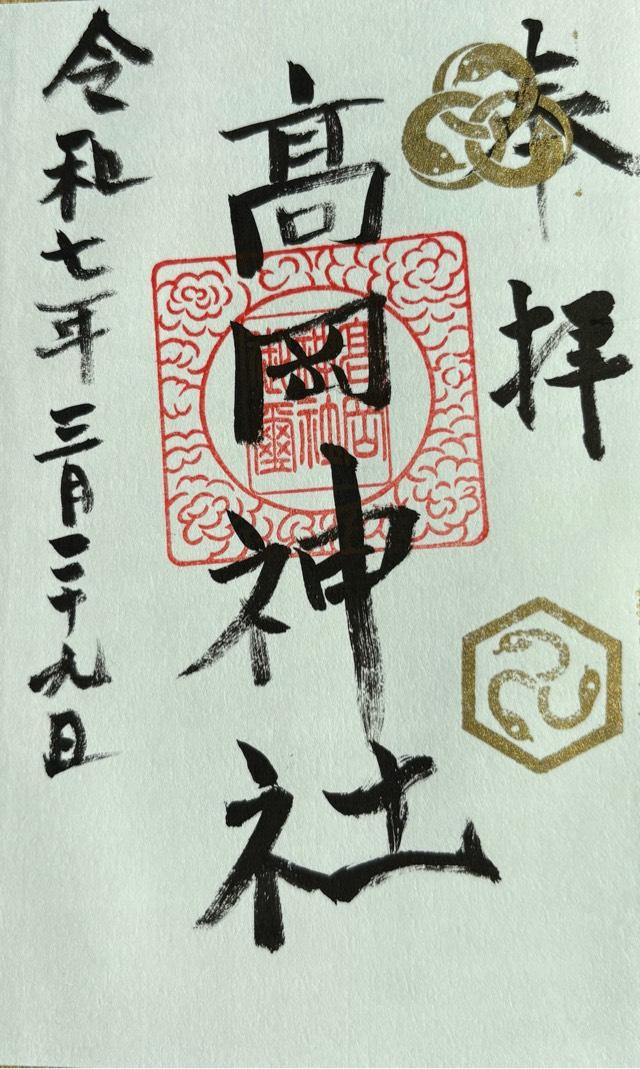 奉拝
髙岡神社
令和七年三月二十九日